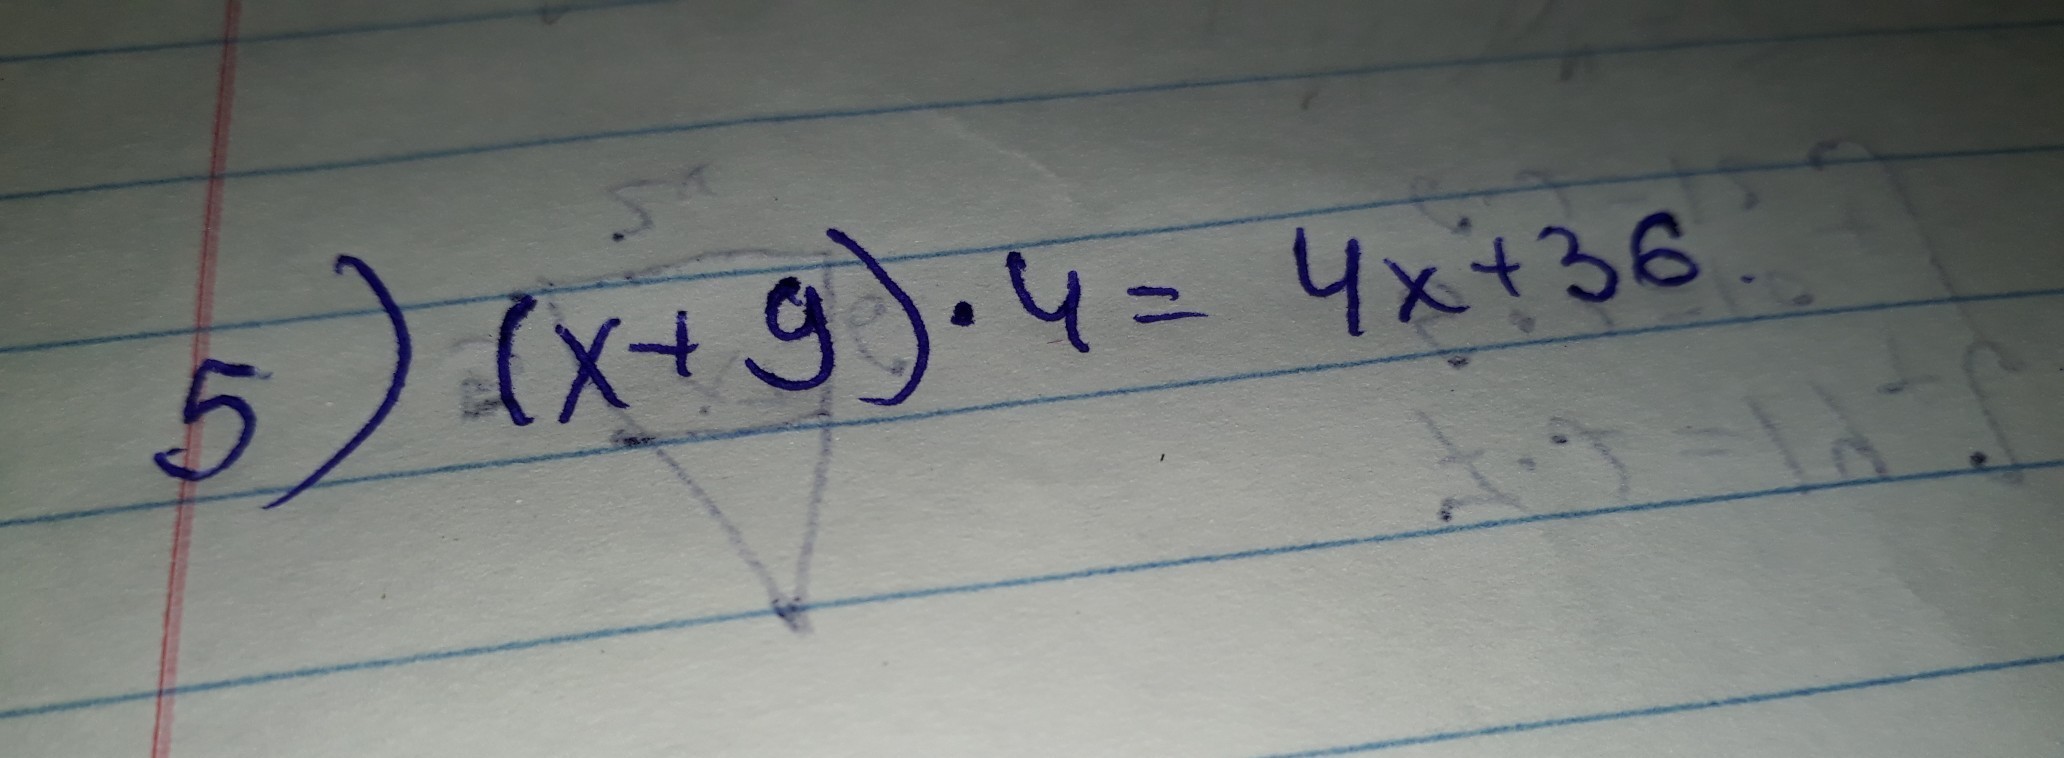 5) (x+9)·4= 4x+36.